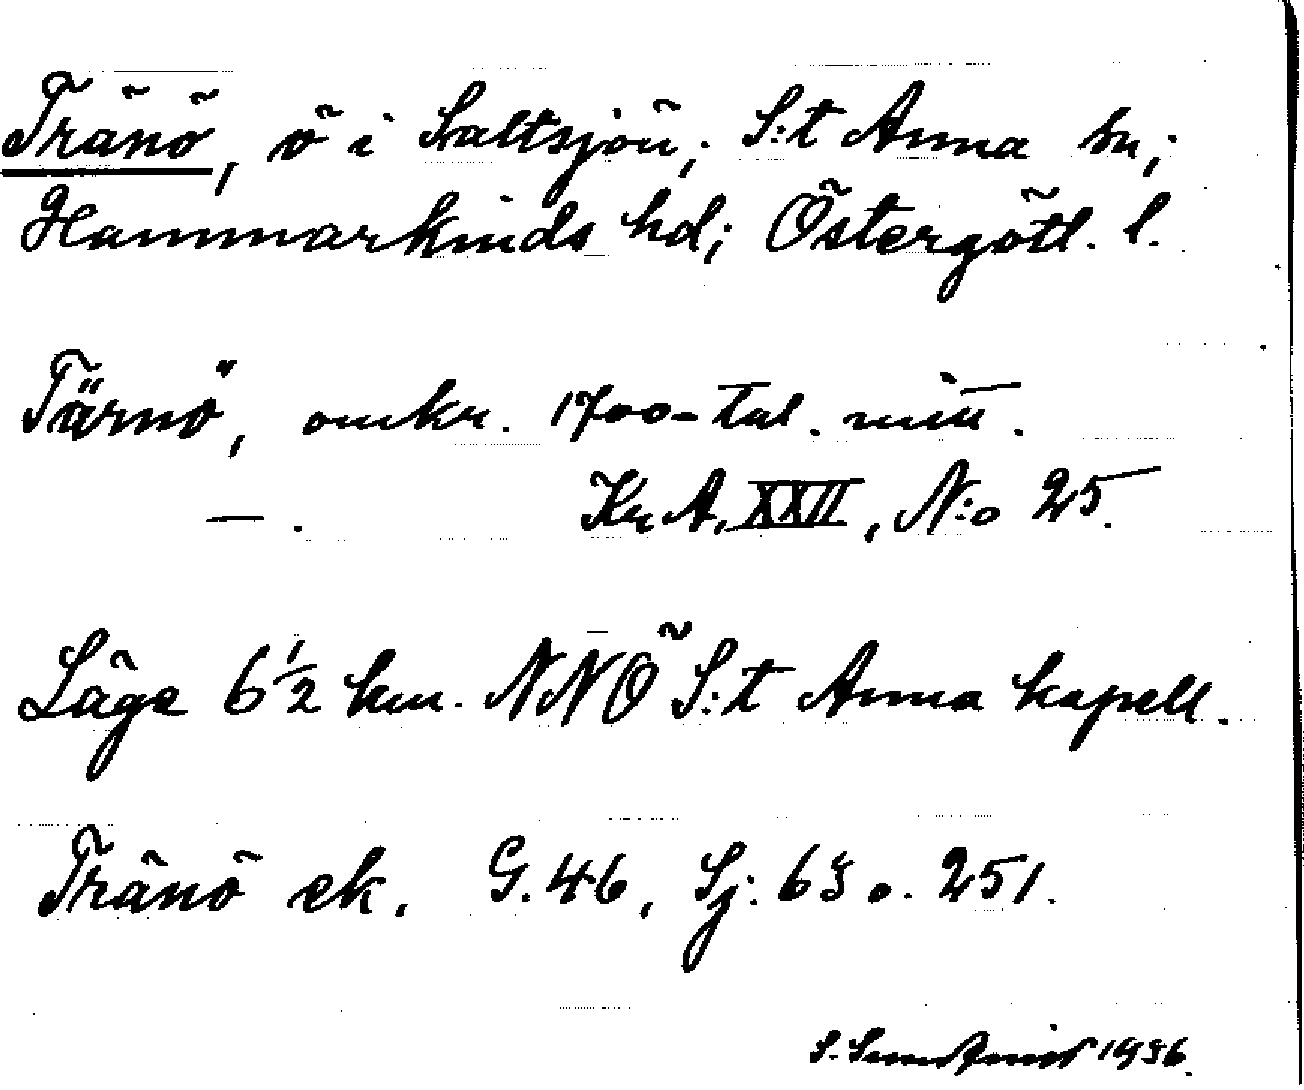 Tränö, ö i Saltsjön; S:t Anna sn;
Hammarkinds hd; Östergötl. l.
Tärnö, omkr. 1700-tal. mitt.
—. Kr. A. XXII, N:o 25.
Läge 6½ km. NNÖ S:t Anna kapell.
Tränö ek. G. 46, Sj: 63 o. 251.
S. 1936.